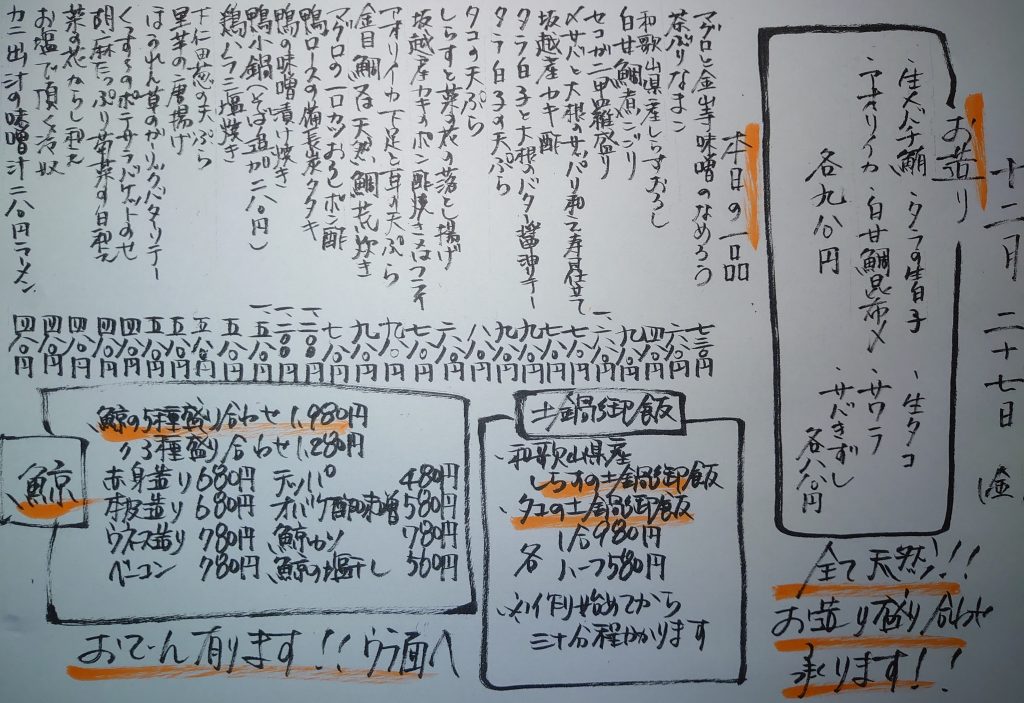 十二月二十七日(金)
お造り
・生本鮪・タラの生白子・生タコ
・アオリイカ・白甘鯛昆布〆・サワラ
・サバきずし
各九八〇円
各八八〇円
全て天然!!
お造り盛り合わせ
承ります!!
本日の一品
マグロと金山寺味噌のなめろう 七三〇円
茶ぶりなまこ 六八〇円
和歌山県産しらすおろし 四八〇円
白甘鯛煮こごり 九八〇円
セコガニ甲羅盛り 一、二八〇円
〆サバと大根のサッパリ和え寿司仕立て 七八〇円
坂越産カキ酢 九八〇円
タラ白子と大根のバター醤油ソテー 九八〇円
タラ白子の天ぷら 九八〇円
タコの天ぷら 八八〇円
しらすと菜の花の落とし揚げ 六八〇円
坂越産カキのポン酢焼き又はフライ 七八〇円
アオリイカ下足と耳の天ぷら 九八〇円
金目鯛又は天然鯛荒炊き 九八〇円
マグロの一口カツおろしポン酢 七八〇円
鴨ロースの備長炭タタキ 一、二〇〇円
鴨の味噌漬け焼き 一、二〇〇円
鴨小鍋(そば追加二八〇円) 一、五八〇円
鶏ハラミ塩焼き 五八〇円
下仁田葱の天ぷら 五八〇円
里芋の唐揚げ 五八〇円
ほうれん草のガーリックバターソテー 五八〇円
くんすものポテサラバケットのせ 四八〇円
胡麻たっぷり菊菜の白和え 四八〇円
菜の花からし和え 四八〇円
お塩で頂く冷奴 四八〇円
カニ出汁の味噌汁二八〇円ラーメン 四八〇円
土鍋御飯
・和歌山県産
しらすの土鍋御飯
・タコの土鍋御飯
各 1合980円
ハーフ580円
※作り始めてから
三十分程かかります
鯨
鯨の5種盛り合わせ1,980円
〃3種盛り合わせ1,280円
赤身造り680円 テッパ 480円
本皮造り680円 オバケ酢味噌580円
ウネス造り780円 鯨カツ 780円
ベーコン780円 鯨の塩干し 560円
おでん有ります!!ウラ面へ